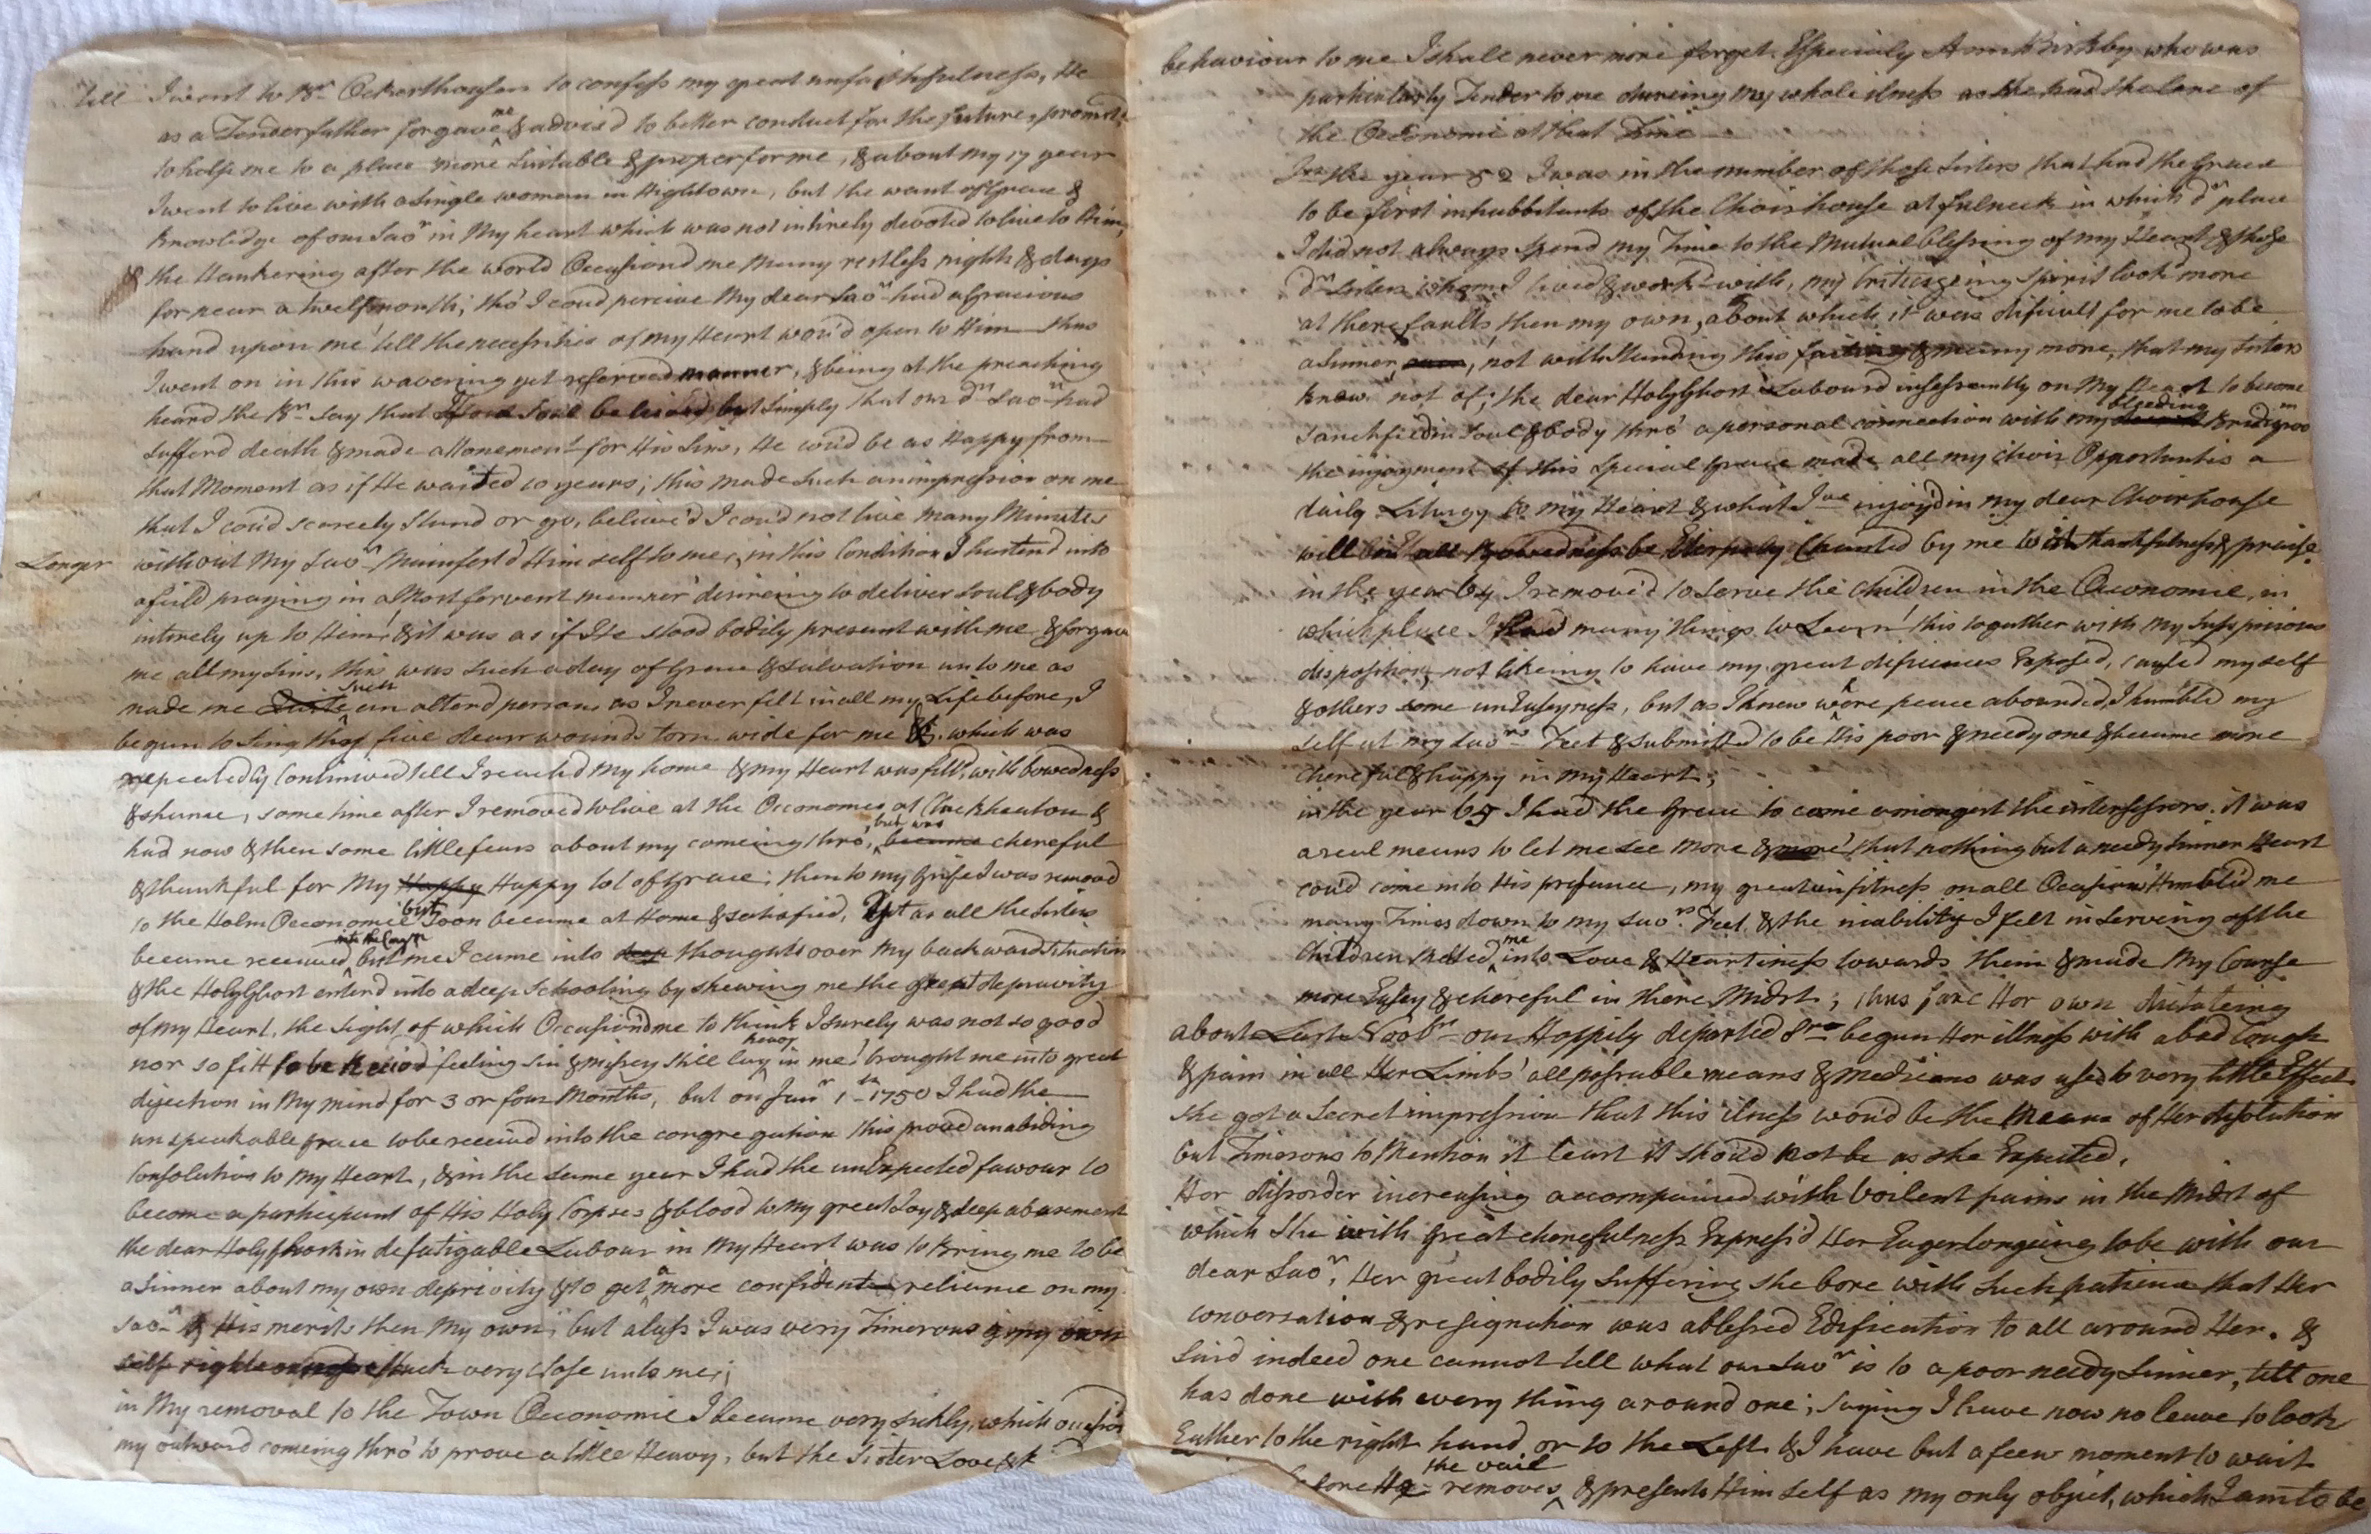 till I went to Br. Ockerthousen to confess my great unfaithfulness, He
as a Tender father forgave me & advis'd to better conduct for the future, promis'd
to help me to a place more suitable & proper for me, & about my 17 year
I went to live with a single woman in Hightown, but the want of Grace &
knowledge of our Savr in My heart which was not intirely devoted to live to Him,
& the Hankering after the world Occasiond me many restless nights & days
for near a twelfmonth; tho' I coud percive My dear Savr had a Gracious
hand upon me 'till the necessities of my Heart wou'd open to Him thus
I went on in this wavering yet reserved manner, & being at the preaching
heard the Br. say that if one Soul believd but simply that our dr Savr had
sufferd death & made attonement for His Sins, He cou'd be as Happy from
that Moment as if He waited 10 years; this made such an impression on me
that I cou'd scarcely Stand or go, believe'd I cou'd not live many Minutes
Longer without My Savr Mainfest'd Him self to me, in this Condition I hastend into
a feild praying in a Most fervent manner desireing to deliver soul & body
intirely up to Him, & it was as if He stood bodily present with me & forgave
me all my Sins, this was such a day of Grace & salvation unto me as
made me Quite such an alterd person, as I never felt in all my Life before, I
begun to Sing thos five dear wounds torn wide for me &. which was
repeatedly Continued till I reach'd My home & my Heart was fill'd with bowedness
& shame, sometime after I removed to live at the Oeconomie at Cleckheaton &
had now & then some little fears about my comeing thro', became but was chereful
& thankful for My Happy Happy lot of Grace; then to my Grife I was removd
to the Holm Oeconomie but soon became at Home & satisfied, Yet as all the Sisters
became received into the Congn but me I came into deep thoughts over My backward Situation
& the Holy Ghost enterd into a deep Schooling by shewing me the great depravity
of my Heart, the Sight of which Occasiond me to think I surely was not so good
nor so fitt to be Reciv'd feeling Sin & missry still lay heavy in me! brought me into great
dijection in My mind for 3 or four Months, but on Janr 1st 1750 I had the
unspeakable grace to be receivd into the congregation this prov'd an abiding
Consolation to My Heart, & in the same year I had the unExpected favour to
become a participant of His Holy Corpses & blood to My great Joy & deep abasement
the dear Holy Ghosts indefatigable Labour in My Heart was to Bring me to be
a Sinner about my own deprivity & to get a more confident reliance on my
Savr & His merits then My own, but alass I was very Timerous & my own
self righteousness stuck very close unto me;
in My removal to the Town Oeconomie I became very sickly, which occasiond
my outward comeing thro' to prove a little Heavy, but the Sister Love &
behaviour to me I shall never more forget. Especialy Ann Kirkby who was
particularly Tender to me dureing my whole ilness as she had the Care of
the Oeconomie at that Time
In the year 52 I was in the number of those Sisters that had the Grace
to be first inhabbitants of the Choir house at fulneck in which dr place
I did not always Spend my Time to the Mutual blessing of my Heart & these
dr Sisters whom I lived & work'd with, my Critisizeing Spirit look'd more
at there faults then my own, about which it was dificult for me to be
a Sinner, notwithstanding this failing & many more, that my Sisters
knew not of; the dear Holy Ghost Labourd inssessantly on My Heart to become
sanctified in soul & body thro' a personal connection with my bleeding Bridegroom
the injoyment of this Special Grace made all my Choir Opportuntis a
daily Liturgy to my Heart & what I've injoy'd in my dear Choir house
will in all Bowedness be Eternaly Chanted by me with thankfulness & praise.
in the year 64 I remove'd to Serve the Children in the Oeconomie, in
which place I had many things to Learn! this togather with My suspissious
disposition, not likeing to have my great defisiences Exposed, caused myself
& others some unEaseyness, but as I knew were peace abounded, I humbled my
self at my Savrs Feet & submitted to be His poor & needy one & became more
chereful & happy in my Heart;
in the year 65 I had the Grace to come amongest the intersessors. it was
a real means to let me see more & more that nothing but a needy Sinner Heart
coud come into His presance, my great unfitness on all Ocasions Humbled me
many Times down to my Savrs Feet, & the inability I felt in Serving of the
Children Melted me into Love & Heartiness towards them & made My Course
more Easey & chereful in there Midst; thus farr Her own dictateing
about Last our Happily departed Sr begun Her illness with a bad Cough
& pain in all Her Limbs' all possable means & medicians was used to very little Effect
she got a Secret impression that this ilness wou'd be the Means of Her disolution
but Timerous to Mention it least it Shou'd Not be as she Expected.
Her dissorder increasing accompanied with Voilent pains in the Midst of
which She with great cherefulness Express'd Her Eager longeing to be with our
dear Savr, Her great bodily Suffering she bore with Such patience that Her
conversation & resignation was a blessed Edification to all around Her. &
Said indeed one cannot tell what our Savr is to a poor needy Sinner, till one
has done with every thing around one; Saying I have now no leave to look
Eather to the right hand or to the Left & I have but a feew moment to wait
before He removes the vail & presents Him self as my only object, which I am to be